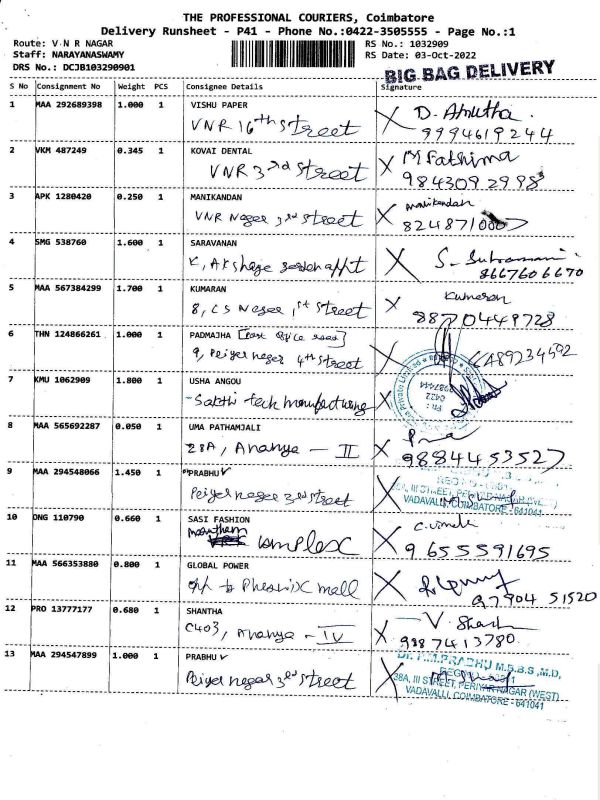 THE PROFESSIONAL COURIERS, Coimbatore
Delivery Runsheet - P41 - Phone No.:0422-3505555 - Page No.:1
Route: V N R NAGAR RS No.: 1032909
Staff: NARAYANASWAMY RS Date: 03-Oct-2022
DRS No.: DCJB103290901 BIG BAG DELIVERY
S No Consignment No Weight PCS Consignee Details Signature
1 MAA 292689398 1.000 1 VISHU PAPER D. Amutha.
VNR 16th street 9994619244
2 VKM 487249 0.345 1 KOVAI DENTAL M Fathima
VNR 3rd street 9843092998
3 APK 1280420 0.250 1 MANIKANDAN Manikandan
VNR Nagar 3rd street
4 SMG 538760 1.600 1 SARAVANAN
8667606670
5 MAA 567384299 1.700 1 KUMARAN Kumaran
8, CS Nagar 1st street 8870449728
6 THN 124866261 1.000 1 PADMAJHA
9, Periyar nagar 4th street
7 KMU 1062909 1.800 1 USHA ANGOU
Sakthi tech manufacturing
8 MAA 565692287 0.050 1 UMA PATHAMJALI
28A, Ananya - II 9884453527
9 MAA 294548066 1.450 1 PRABHU
Periyar nagar 3rd street VADAVALLI, COIMBATORE - 641041
10 DNG 110790 0.660 1 SASI FASHION
complex 9655591695
11 MAA 566353880 0.800 1 GLOBAL POWER
opp to Pheonix mall 97904 51520
12 PRO 13777177 0.680 1 SHANTHA
C403, Ananya - IV 9887413780
13 MAA 294547899 1.000 1 PRABHU Dr. P.M.PRABHU M.B.B.S.,M.D,
Periyar nagar 3rd street 38A, III STREET, PERIYAR NAGAR (WEST)
VADAVALLI, COIMBATORE - 641041